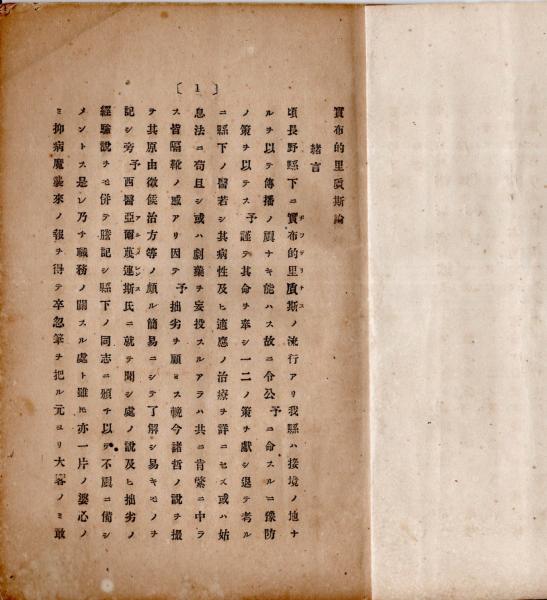 〔1〕
實布的里質斯論
緒言
頃長野縣下ニ實布的里質斯ノ流行アリ我縣ハ接境ノ地ナ
ジフテリトス
ルヲ以テ傳播ノ虞ナキ能ハス故ニ令公予ニ命スルニ豫防
ノ策ヲ以テス予謹テ其命ヲ奉シ一二ノ策ヲ獻シ退テ考ル
ニ縣下ノ醫若シ其病性及ヒ適應ノ治療ヲ詳ニセス或ハ姑
息法ニ苟且シ或ハ劇藥ヲ妄投スルアラハ共ニ肯綮ニ中ラ
ス皆隔靴ノ感アリ因テ予拙劣ヲ顧ミス輓今諸哲ノ說ヲ撮
テ其原由徵候治方等ノ頗ル簡易ニシテ了解シ易キモノヲ
記シ旁予西醫亞爾蔑連斯氏ニ就テ聞シ處ノ說及ヒ拙劣ノ
經驗說ヲモ併テ謄記シ縣下ノ同志ニ頒チ以テ不虞ニ備シ
メントス是レ乃チ職務ノ關スル處ト雖𪜈亦一片ノ婆心ノ
ミ抑病魔襲來ノ報ヲ得テ卒忽筆ヲ把ル元ヨリ大客ノミ敢